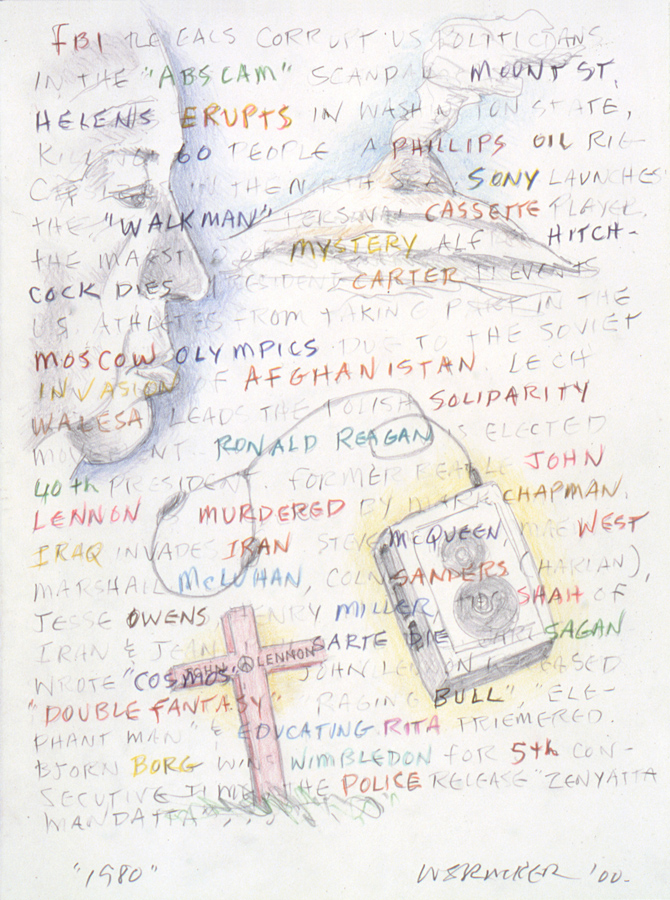 FBI REVEALS CORRUPT US POLITICIANS
IN THE "ABSCAM" SCANDAL MOUNT ST.
HELENS ERUPTS IN WASHINGTON STATE,
KILLING 60 PEOPLE A PHILLIPS OIL RIG
IN THE NORTH SEA. SONY LAUNCHES
THE "WALKMAN" PERSONAL CASSETTE PLAYER.
THE MASTER OF MYSTERY ALFRED HITCH-
COCK DIES. PRESIDENT CARTER PREVENTS
U.S. ATHLETES FROM TAKING PART IN THE
MOSCOW OLYMPICS DUE TO THE SOVIET
INVASION OF AFGHANISTAN. LECH
WALESA LEADS THE POLISH SOLIDARITY
MOVEMENT. RONALD REAGAN IS ELECTED
40th PRESIDENT. FORMER BEATLE JOHN
LENNON IS MURDERED BY MARK CHAPMAN.
IRAQ INVADES IRAN. STEVE McQUEEN, MAE WEST
MARSHALL McLUHAN, COLN SANDERS (HARLAN),
JESSE OWENS, HENRY MILLER, THE SHAH OF
IRAN & JEAN SARTE DIE CARL SAGAN
WROTE "COSMOS" JOHN LENNON RELEASED
"DOUBLE FANTASY" "RAGING BULL", "ELE-
PHANT MAN" & EDUCATING RITA PRIEMERED.
BJORN BORG WINS WIMBLEDON FOR 5th CON-
SECUTIVE TIME. THE POLICE RELEASE "ZENYATTA
MANDATTA"...
JOHN LENNON
"1980"
'00.